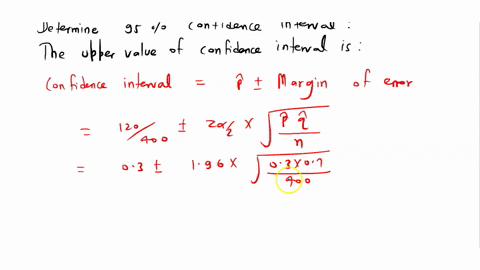 Determine 95 % confidence interval :
The upper value of confidence interval is :
Confidence interval = p̂ ± Margin of error
= 120/400 ± Zα/2 × √(p̂ q̂ / n)
= 0.3 ± 1.96 × √(0.3×0.7 / 400)